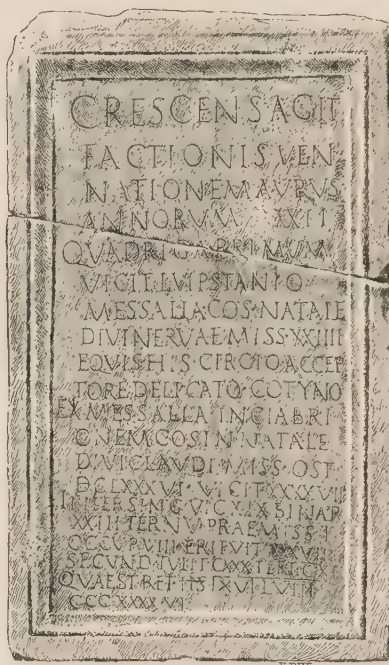 CRESCENS AGIT
FACTIONIS VEN
NATIONE MAVRVS
ANNORVM XXII
QVADRIGA PRIMVM
VICIT L VIPSTANIO
MESSALLA COS NATALE
DIVI NERVAE MISS XXIIII
EQVIS H S CIRCIO ACCEP
TORE DELICATO COTYNO
EX MESSALLA IN GLABRI
ONEM COS IN NATALE
DIVI CLAVDI MISS OST
DCLXXXVI VICIT XXXXVII
INTER SING VIC XIX BINAR
XXIII TERN V PRAEM SS I
OCCVP VIII ERIPVIT XXXVIII
SECVND TVLIT CXXX TERT CXI
QVAEST RET HS XV LVIII
CCCXXXXVI